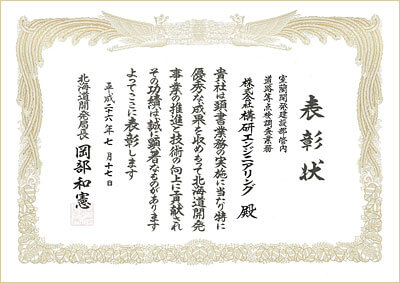 表彰状
室蘭開発建設部管内
道路等点検調査業務
株式会社構研エンジニアリング 殿
貴社は頭書業務の実施に当たり特に
優秀な成果を収めもって北海道開発
事業の推進と技術の向上に貢献され
その功績は誠に顕著なものがあります
よってここに表彰します
平成二十六年七月十七日
北海道開発局長 岡部和憲